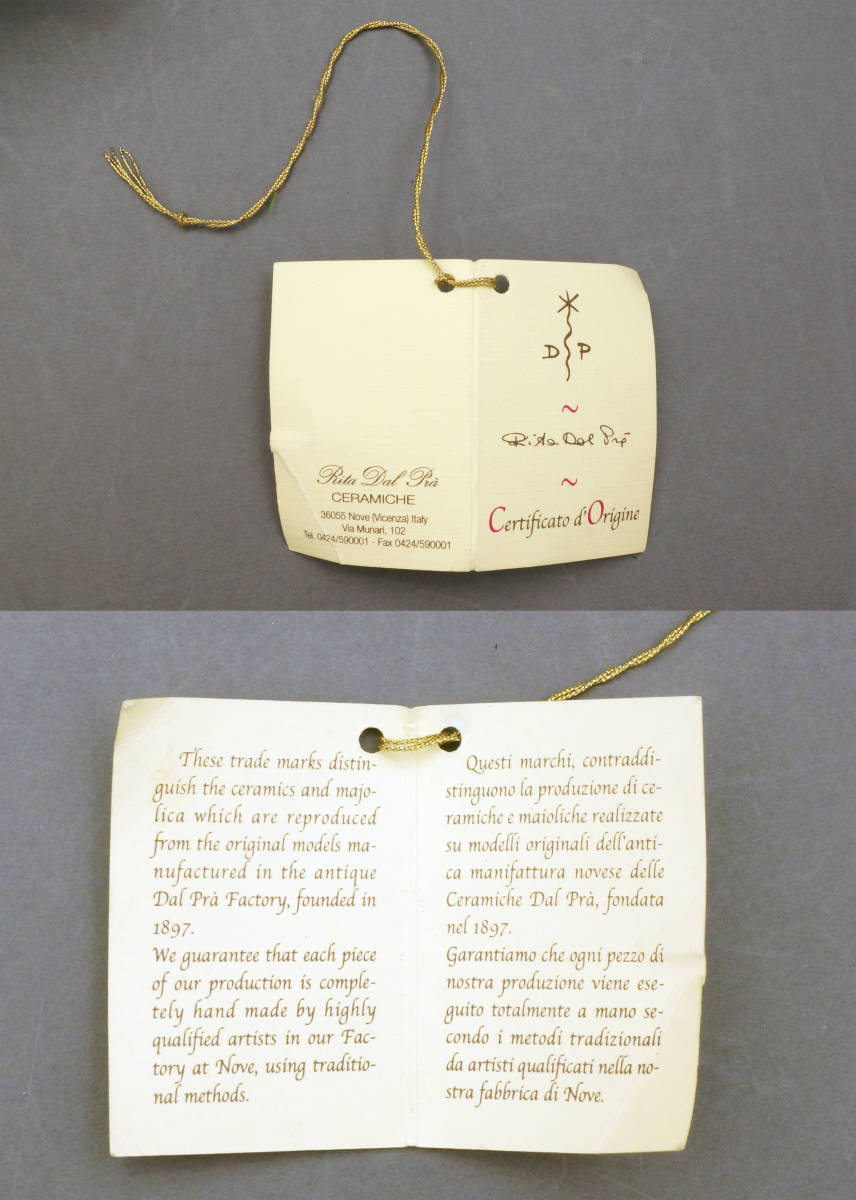 Rita Dal Prà
CERAMICHE
36055 Nove (Vicenza) Italy
Via Munari, 102
Tel. 0424/590001 - Fax 0424/590001
D P
~
Rita Dal Prà
~
Certificato d'Origine
These trade marks distin-
guish the ceramics and majo-
lica which are reproduced
from the original models ma-
nufactured in the antique
Dal Prà Factory, founded in
1897.
We guarantee that each piece
of our production is comple-
tely hand made by highly
qualified artists in our Fac-
tory at Nove, using traditio-
nal methods.
Questi marchi, contraddi-
stinguono la produzione di ce-
ramiche e maioliche realizzate
su modelli originali dell'anti-
ca manifattura novese delle
Ceramiche Dal Prà, fondata
nel 1897.
Garantiamo che ogni pezzo di
nostra produzione viene ese-
guito totalmente a mano se-
condo i metodi tradizionali
da artisti qualificati nella no-
stra fabbrica di Nove.